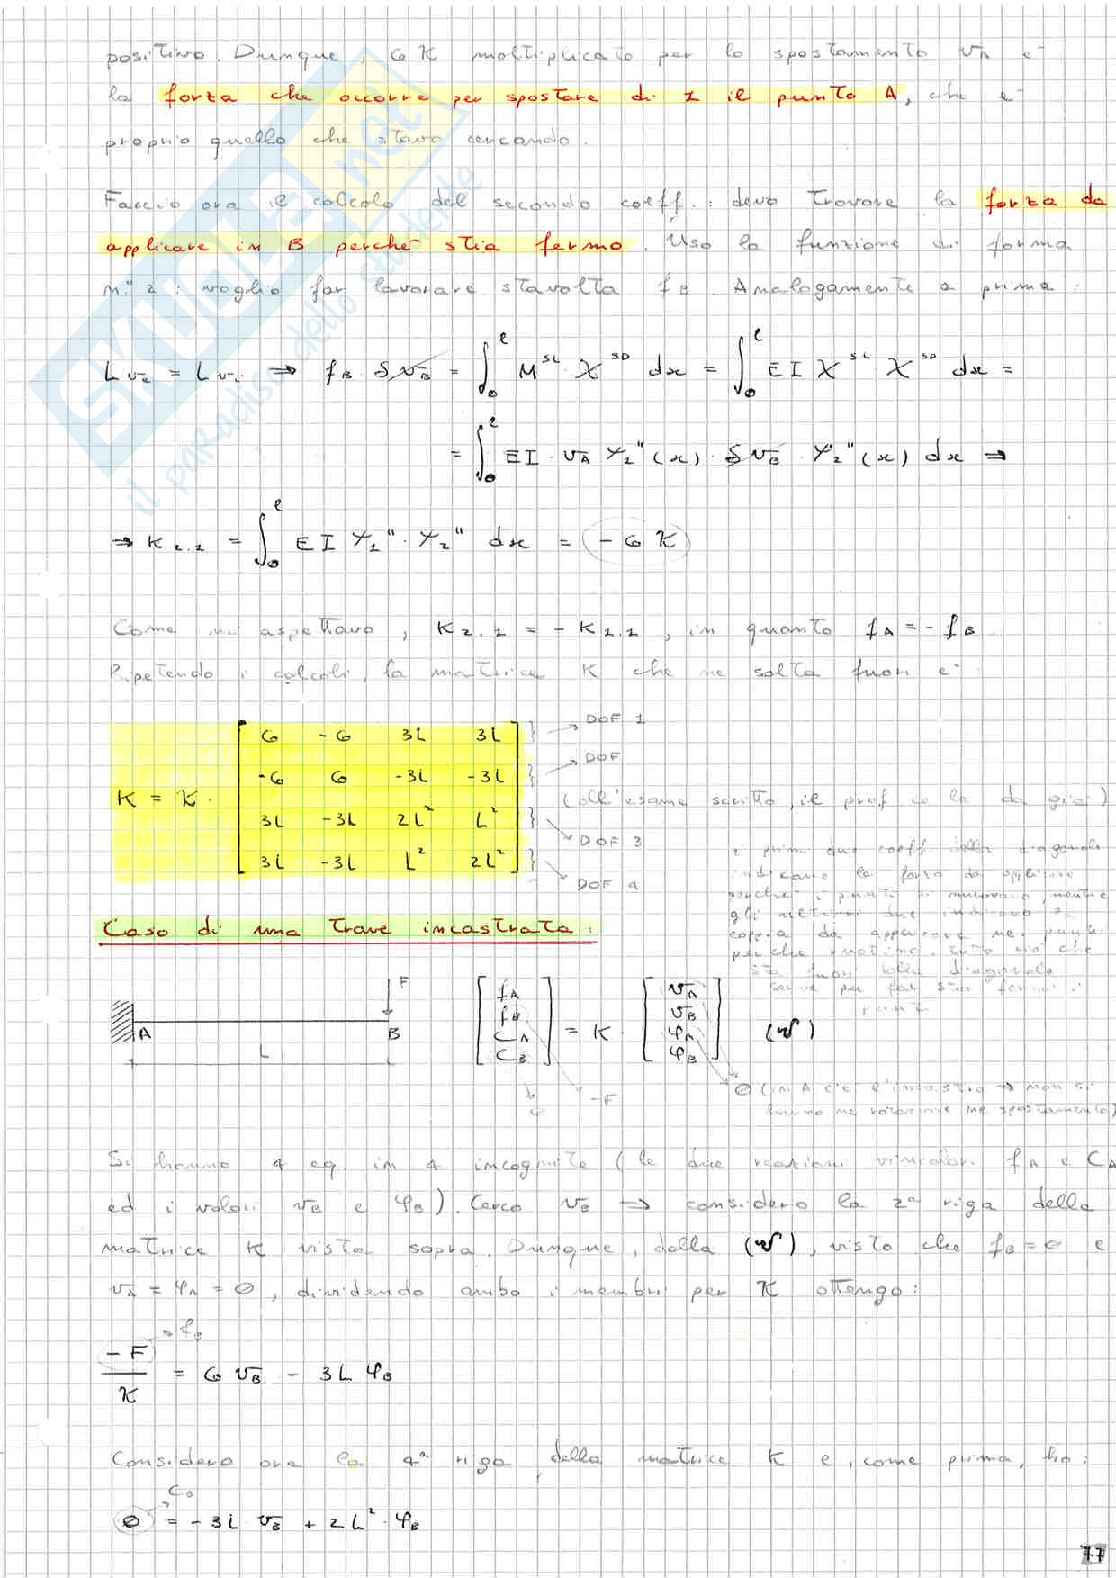 positivo. Dunque, 6 K moltiplicato per lo spostamento vA è
la forza che occorre per spostare di 1 il punto A, che è
proprio quello che stavo cercando.
Faccio ora il calcolo del secondo coeff.: devo trovare la forza da
applicare in B perché stia fermo. Uso la funzione di forma
n° 2: voglio far lavorare stavolta fB. Analogamente a prima:
Lve = Lvi ⇒ fB δvB = ∫₀ˡ M^SL · χ^SD dx = ∫₀ˡ EI χ^SL χ^SD dx =
= ∫₀ˡ EI · vA ψ₂"(x) · δvB · ψ₂"(x) dx ⇒
⇒ K2.1 = ∫₀ˡ EI ψ₁" · ψ₂" dx = (-6 K)
Come mi aspettavo, K2.1 = -K1.1, in quanto fA = -fB
Ripetendo i calcoli, la matrice K che ne salta fuori è:
K = K · [ 6 -6 3L 3L ] DOF 1
[ -6 6 -3L -3L ] DOF
(all'esame scritto, il prof ce la dà già)
[ 3L -3L 2L² L² ] DOF 3
[ 3L -3L L² 2L² ] DOF 4
i primi due coeff della diagonale
indicano la forza da applicare
perché i punti si muovano, mentre
gli ultimi due indicano la
coppia da applicare nei punti
perché ruotino. Tutto ciò che
sta fuori dalla diagonale
serve per far star fermi i
punti
Caso di una trave incastrata:
F
A B
L
[ fA fB CA CB ] = K · [ vA vB φA φB ] (w)
φ -F
0 (in A c'è l'incastro → non si
hanno né rotazione né spostamento)
Si hanno 4 eq. in 4 incognite (le due reazioni vincolari fA e CA
ed i valori vB e φB). Cerco vB → considero la 2ª riga della
matrice K vista sopra. Dunque, dalla (w), visto che fB = 0 e
vA = φA = 0, dividendo ambo i membri per K ottengo:
→ fB
-F / K = 6 vB - 3L φB
Considero ora la 4ª riga della matrice K e, come prima, ho:
CB
0 = -3L vB + 2L² · φB
77